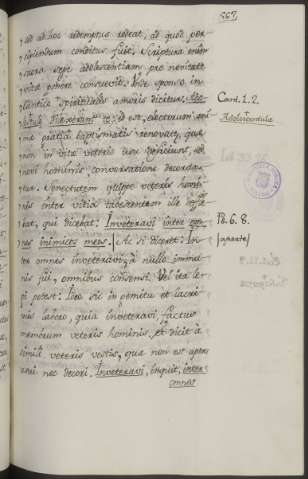 267.
, ad ad hoc redemptus redeat, ad quod per-
cipiendum conditus fuit. Scriptura enim
sacra sepe adolescentiam pro novitate
vitæ ponere consuevit. Unde sponso in
cantico spiritualis amoris dicitur. Ado-
lescentulæ dilexerunt te; id est, electorum ani-
mæ gratia baptismatis renovatæ, quæ
non in vita veteris usu deficiunt, sed
novi hominis conversatione decoran-
tur. Senectutem quippe veteris homi-
nis inter vitia tabescentem ille
bat, qui dicebat: Inveteravi inter om-
nes inimicos meos. Ac si diceret: In-
ter omnes inveteravi, a nullo immu-
nis fui, omnibus consensi. Vel ita le-
gi potest: Ideo sic in gemitu et lacri-
mis lavo, quia inveteravi, factus
memorum veteris hominis, et dicit a
simili veteris vestis, quæ non est apta
nec decori. Inveteravi, inquit, inter
omnes
Cant. 1. 2.
Adolescentula
Ps. 6. 8.
[aparte]